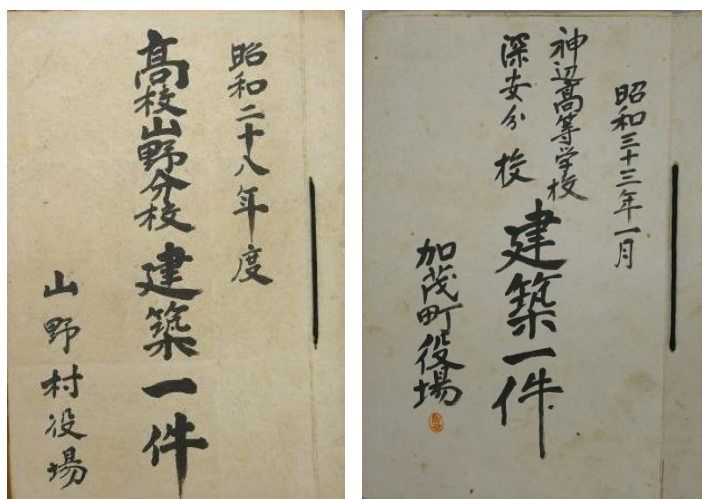 昭和二十八年度
高校山野分校建築一件
山野村役場
昭和三十三年一月
神辺高等学校
深安分校
建築一件
加茂町役場